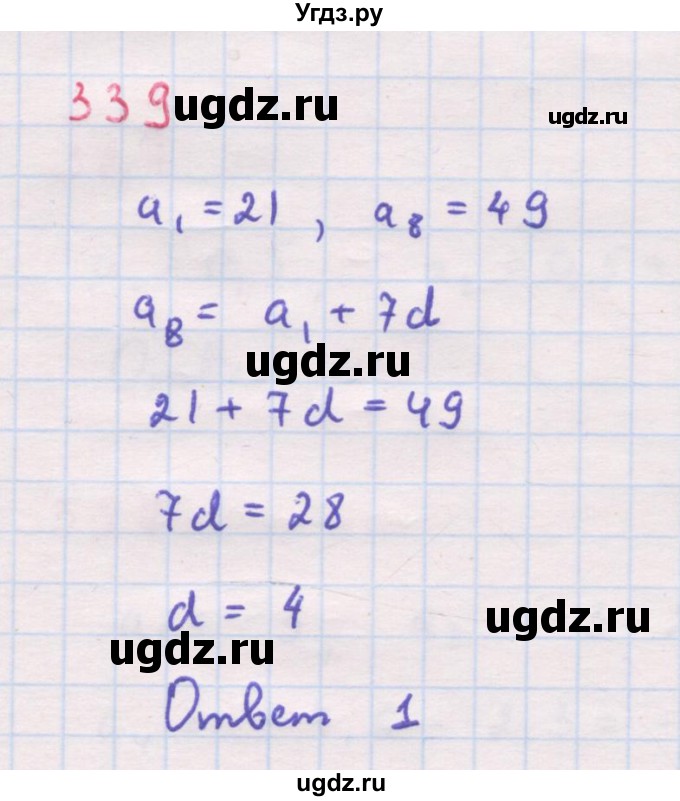 Угдз.ру
339 ugdz.ru ugdz.ru
a₁ = 21, a₈ = 49
a₈ = a₁ + 7d
ugdz.ru
21 + 7d = 49
7d = 28
d = 4
ugdz.ru
ugdz.ru
Ответ 1
ugdz.ru